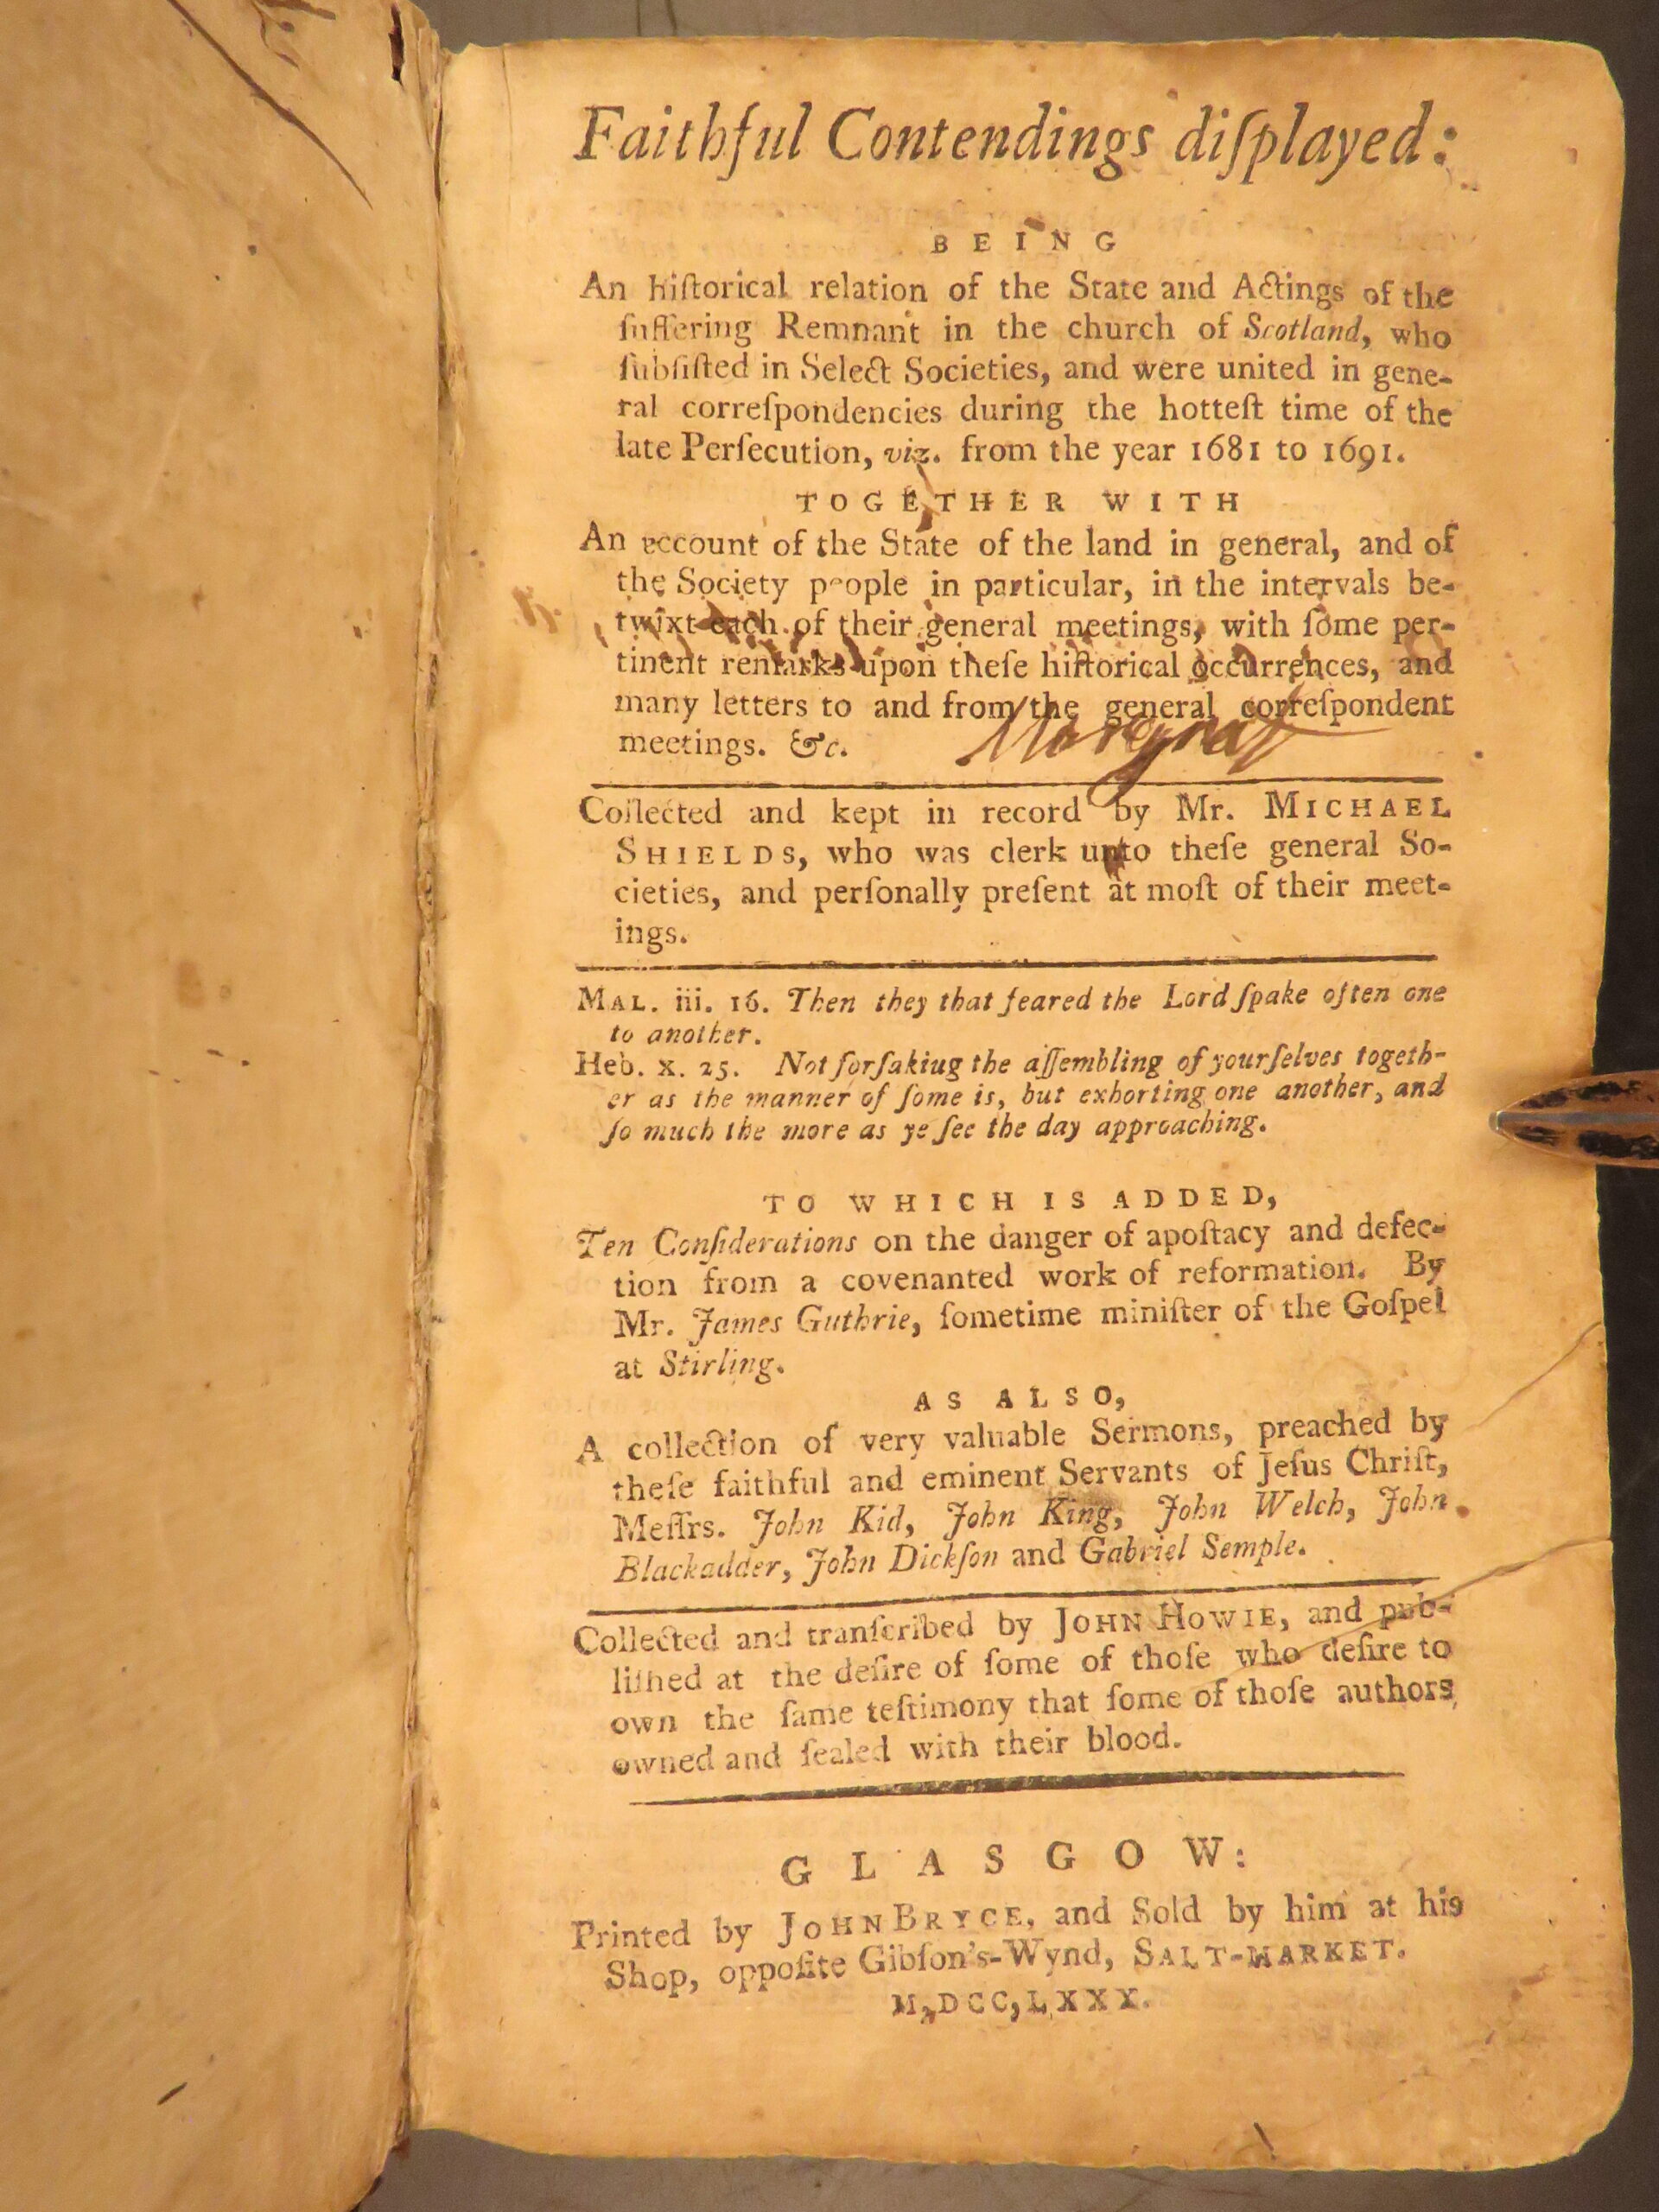 Faithful Contendings diſplayed:
BEING
An hiſtorical relation of the State and Actings of the
ſuffering Remnant in the church of Scotland, who
ſubſiſted in Select Societies, and were united in gene-
ral correſpondencies during the hotteſt time of the
late Perſecution, viz. from the year 1681 to 1691.
TOGETHER WITH
An account of the State of the land in general, and of
the Society people in particular, in the intervals be-
twixt each of their general meetings, with ſome per-
tinent remarks upon theſe hiſtorical occurrences, and
many letters to and from the general correſpondent
meetings. &c.
Collected and kept in record by Mr. MICHAEL
SHIELDS, who was clerk unto theſe general So-
cieties, and perſonally preſent at moſt of their meet-
ings.
MAL. iii. 16. Then they that feared the Lord ſpake often one
to another.
Heb. x. 25. Not forſakiug the aſſembling of yourſelves togeth-
er as the manner of ſome is, but exhorting one another, and
ſo much the more as ye ſee the day approaching.
TO WHICH IS ADDED,
Ten Conſiderations on the danger of apoſtacy and defec-
tion from a covenanted work of reformation. By
Mr. James Guthrie, ſometime miniſter of the Goſpel
at Stirling.
AS ALSO,
A collection of very valuable Sermons, preached by
theſe faithful and eminent Servants of Jeſus Chriſt,
Meſſrs. John Kid, John King, John Welch, John
Blackadder, John Dickſon and Gabriel Semple.
Collected and tranſcribed by JOHN HOWIE, and pub-
liſhed at the deſire of ſome of thoſe who deſire to
own the ſame teſtimony that ſome of thoſe authors
owned and ſealed with their blood.
GLASGOW:
Printed by JOHN BRYCE, and Sold by him at his
Shop, oppoſite Gibſon's-Wynd, SALT-MARKET.
M,DCC,LXXX.